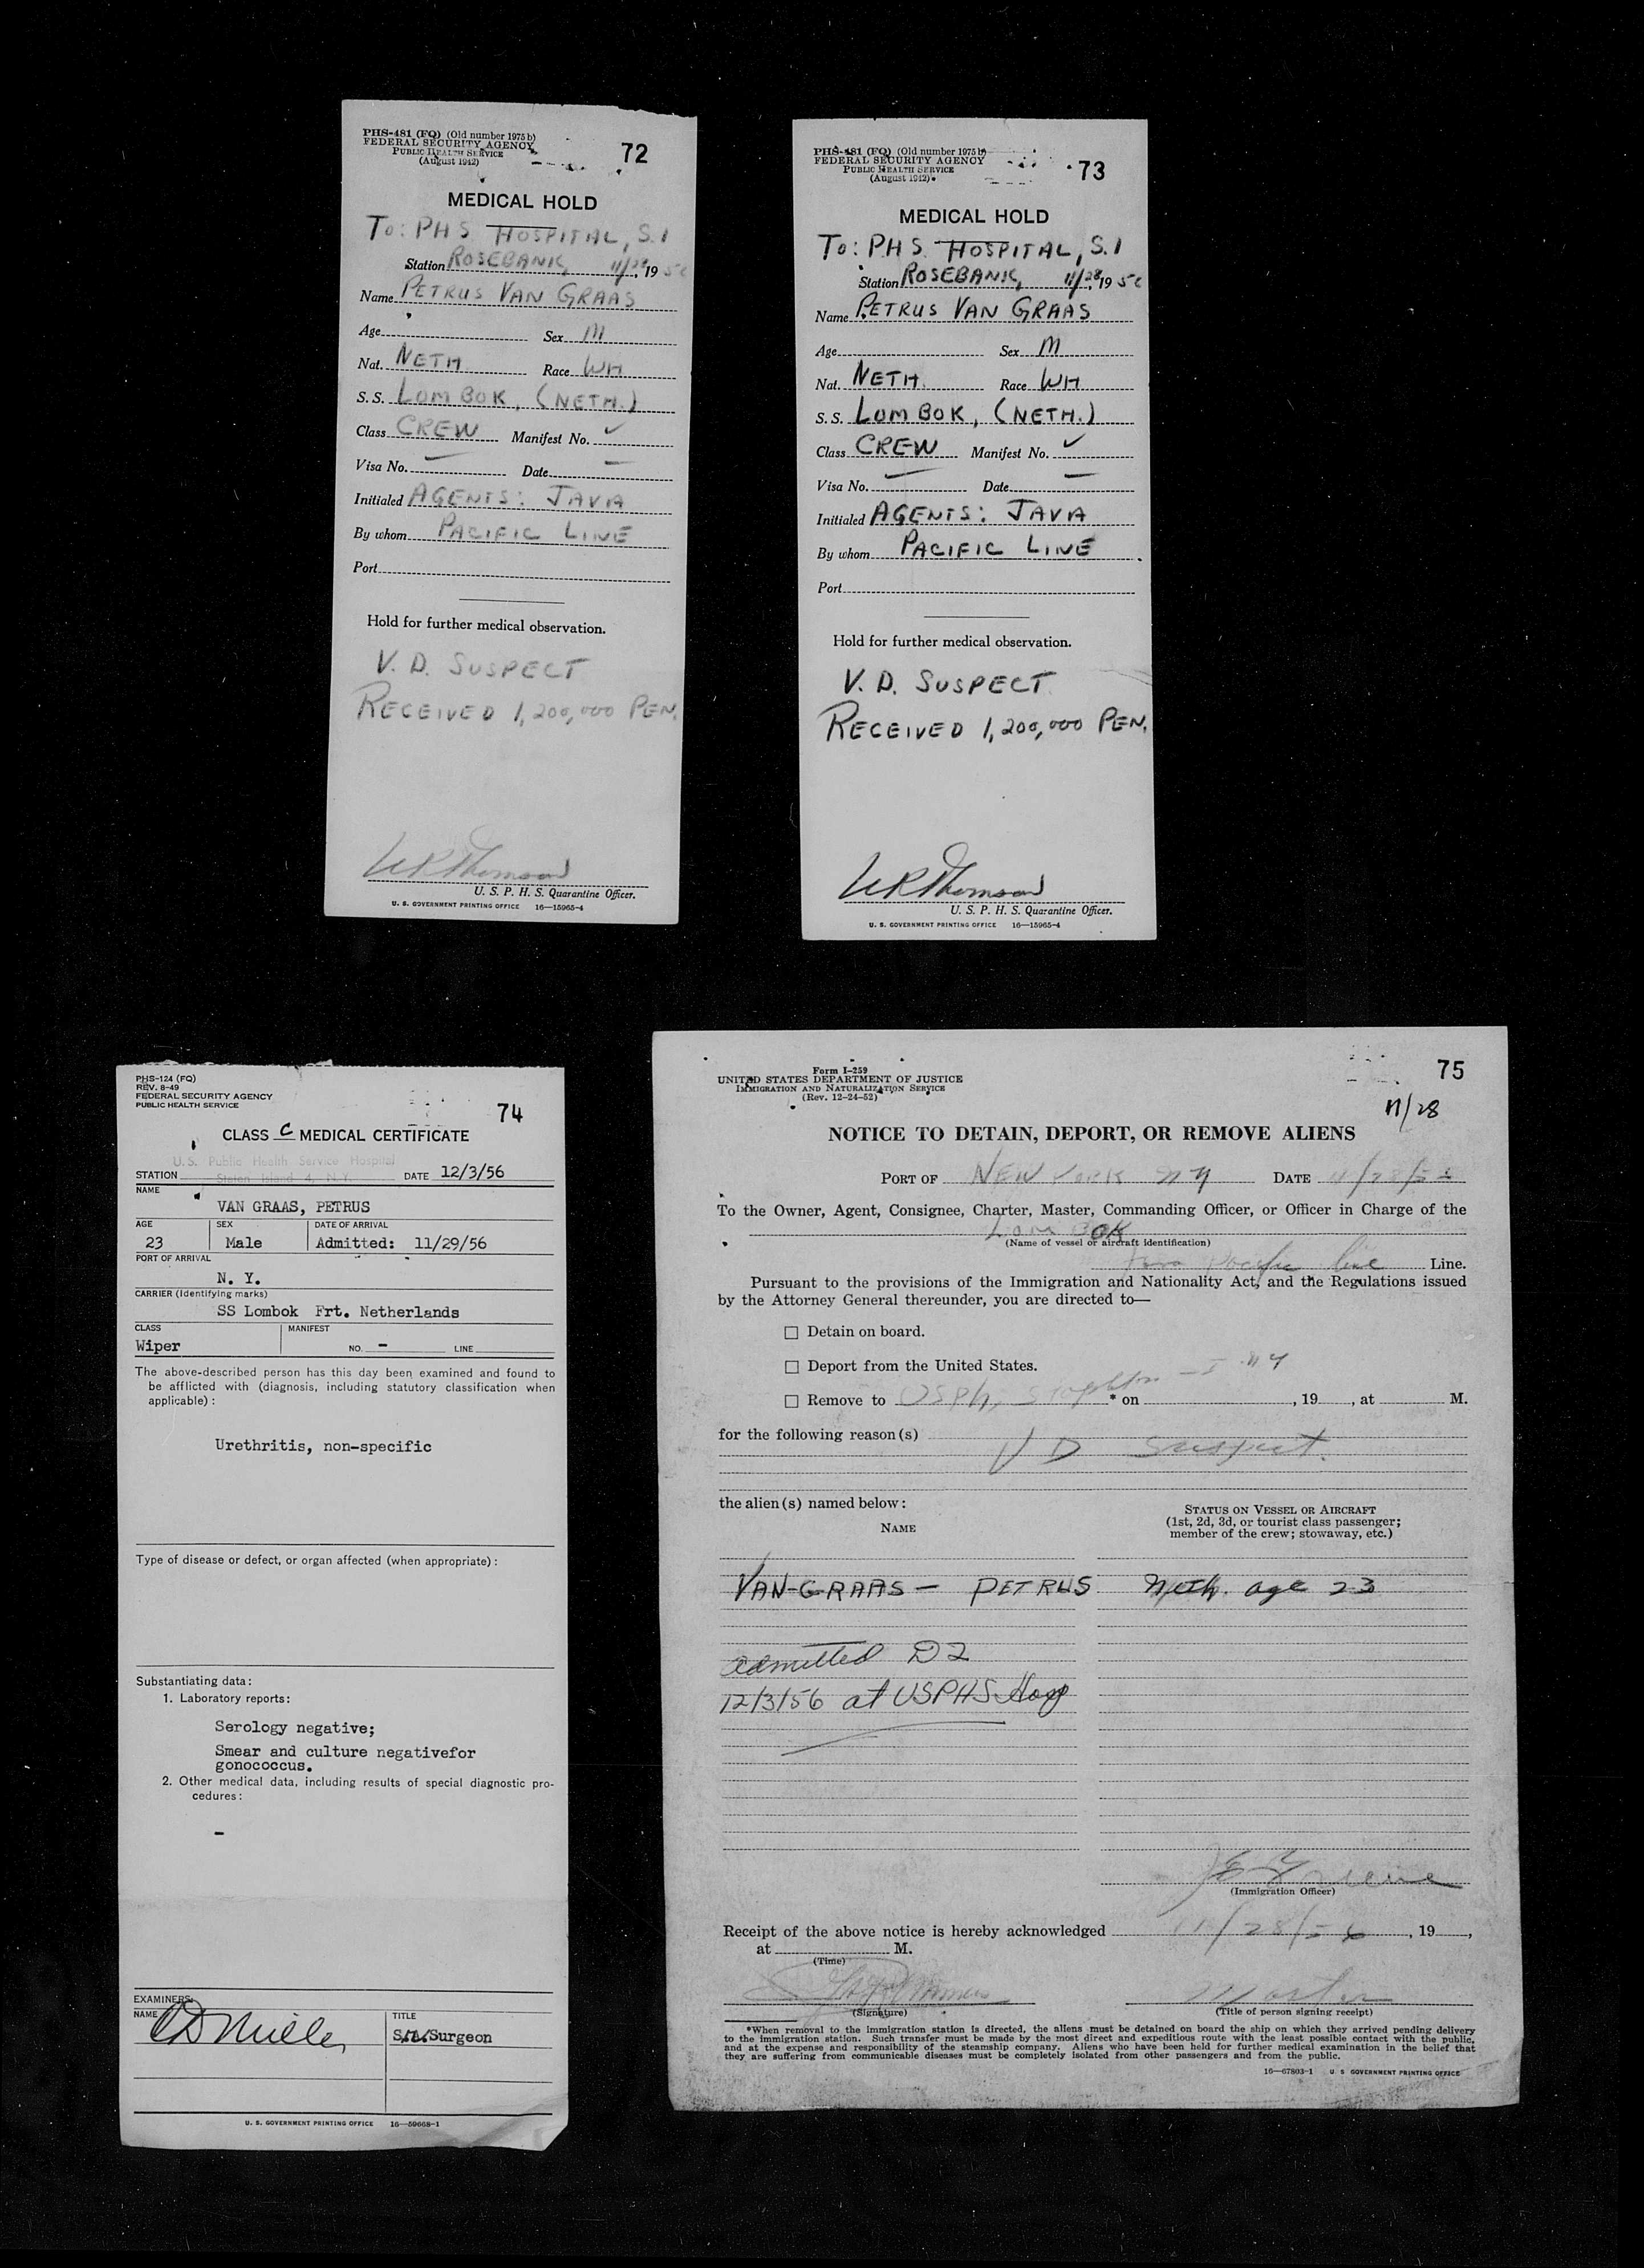 PHS-481 (FQ) (Old number 1975 b)
FEDERAL SECURITY AGENCY
PUBLIC HEALTH SERVICE
(August 1942)
72
MEDICAL HOLD
To: PHS HOSPITAL, S.I
Station ROSEBANK, 11/28, 19 5
Name PETRUS VAN GRAAS
Age Sex M
Nat. NETH Race WH
S. S. LOMBOK, (NETH.)
Class CREW Manifest No. ✓
Visa No. — Date —
Initialed AGENTS: JAVA
By whom PACIFIC LINE
Port
Hold for further medical observation.
V. D. SUSPECT
RECEIVED 1,200,000 PEN.
U. S. P. H. S. Quarantine Officer.
U. S. GOVERNMENT PRINTING OFFICE 16—15965-4
PHS-481 (FQ) (Old number 1975 b)
FEDERAL SECURITY AGENCY
PUBLIC HEALTH SERVICE
(August 1942)
73
MEDICAL HOLD
To: PHS HOSPITAL, S.I
Station ROSEBANK, 11/28, 19 5
Name PETRUS VAN GRAAS
Age Sex M
Nat. NETH. Race WH
S. S. LOMBOK, (NETH.)
Class CREW Manifest No. ✓
Visa No. — Date —
Initialed AGENTS: JAVA
By whom PACIFIC LINE
Port
Hold for further medical observation.
V. D. SUSPECT
RECEIVED 1,200,000 PEN.
U. S. P. H. S. Quarantine Officer.
U. S. GOVERNMENT PRINTING OFFICE 16—15965-4
PHS-124 (FQ)
REV. 8-49
FEDERAL SECURITY AGENCY
PUBLIC HEALTH SERVICE
74
CLASS C MEDICAL CERTIFICATE
U.S. Public Health Service Hospital
STATION Staten Island 4, N.Y. DATE 12/3/56
NAME
VAN GRAAS, PETRUS
AGE SEX DATE OF ARRIVAL
23 Male Admitted: 11/29/56
PORT OF ARRIVAL
N. Y.
CARRIER (Identifying marks)
SS Lombok Frt. Netherlands
CLASS MANIFEST
Wiper NO. - LINE
The above-described person has this day been examined and found to
be afflicted with (diagnosis, including statutory classification when
applicable):
Urethritis, non-specific
Type of disease or defect, or organ affected (when appropriate):
Substantiating data:
1. Laboratory reports:
Serology negative;
Smear and culture negativefor
gonococcus.
2. Other medical data, including results of special diagnostic pro-
cedures:
-
EXAMINERS
NAME TITLE
Surgeon
U. S. GOVERNMENT PRINTING OFFICE 16—59668-1
Form I-259
UNITED STATES DEPARTMENT OF JUSTICE
IMMIGRATION AND NATURALIZATION SERVICE
(Rev. 12-24-52)
75
11/28
NOTICE TO DETAIN, DEPORT, OR REMOVE ALIENS
PORT OF NEW YORK NY DATE 11/28/5
To the Owner, Agent, Consignee, Charter, Master, Commanding Officer, or Officer in Charge of the
Lom BOK
(Name of vessel or aircraft identification)
Java Pacific line Line.
Pursuant to the provisions of the Immigration and Nationality Act, and the Regulations issued
by the Attorney General thereunder, you are directed to—
☐ Detain on board.
☐ Deport from the United States.
☐ Remove to USPH, Stapleton * on , 19 , at M.
for the following reason(s)
V D Suspect.
the alien(s) named below:
NAME
STATUS ON VESSEL OR AIRCRAFT
(1st, 2d, 3d, or tourist class passenger;
member of the crew; stowaway, etc.)
VAN-GRAAS — PETRUS Neth. age 23
admitted D2
12/3/56 at USPHS Hosp
(Immigration Officer)
Receipt of the above notice is hereby acknowledged 11/28/56, 19 ,
at M.
(Time)
Master
(Signature) (Title of person signing receipt)
*When removal to the immigration station is directed, the aliens must be detained on board the ship on which they arrived pending delivery
to the immigration station. Such transfer must be made by the most direct and expeditious route with the least possible contact with the public,
and at the expense and responsibility of the steamship company. Aliens who have been held for further medical examination in the belief that
they are suffering from communicable diseases must be completely isolated from other passengers and from the public.
16—67803-1 U S GOVERNMENT PRINTING OFFICE